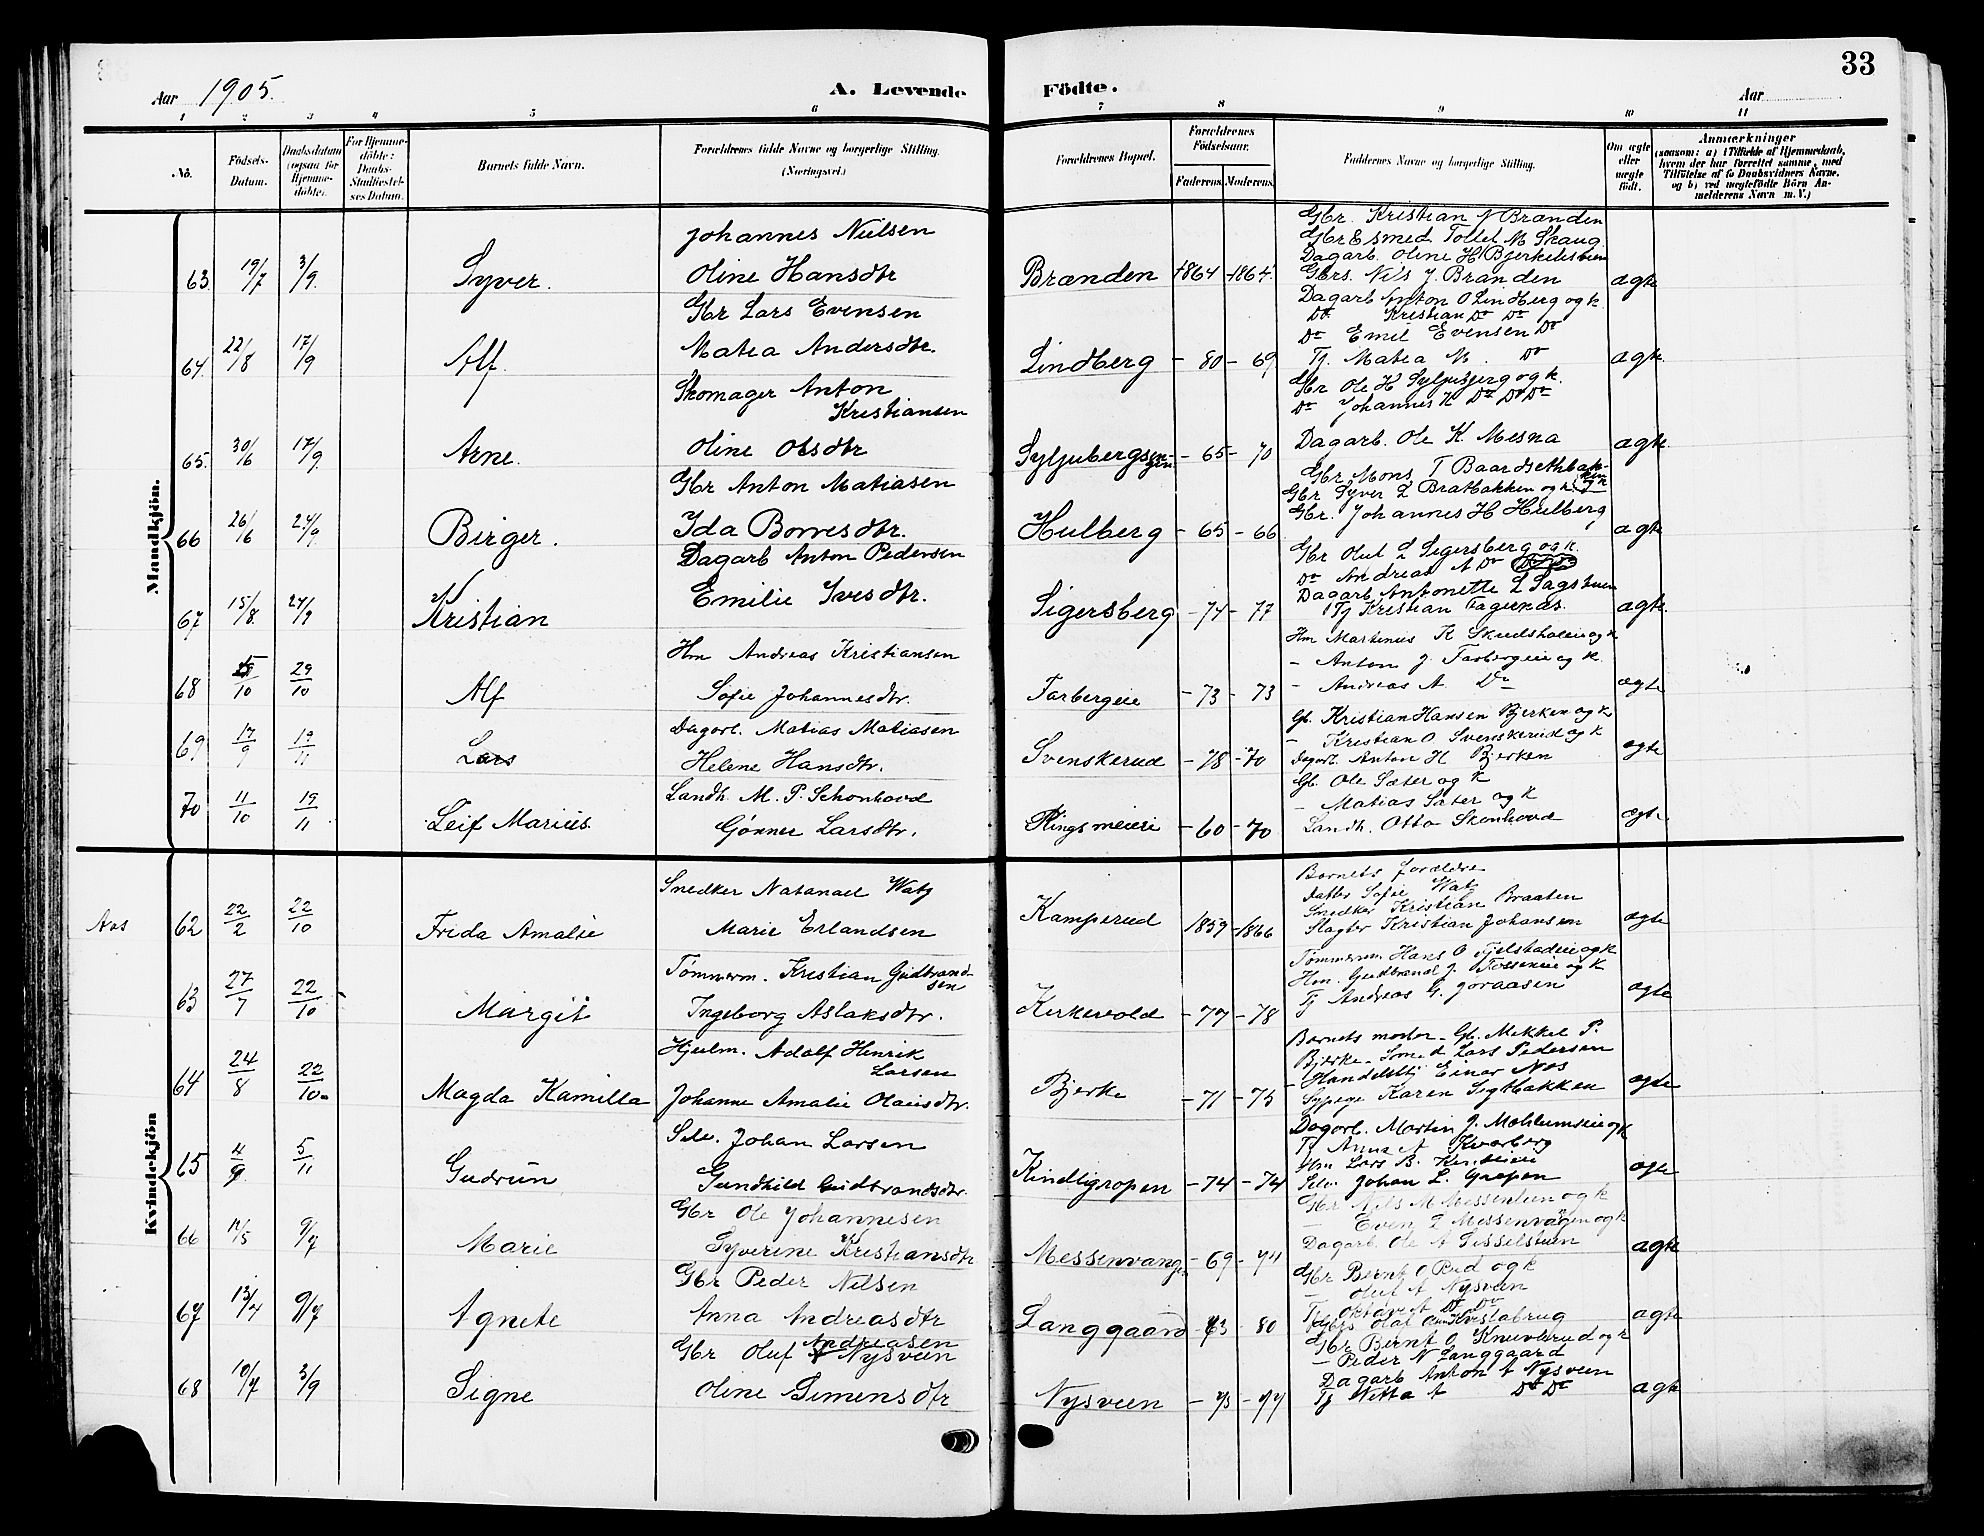 33
Aar 1905.
A. Levende Födte.
Aar
1 2 3 4 5 6 7 8 9 10 11
No.
Födsels-Datum.
Daabsdatum (ogsaa for Hjemme-döbte).
For Hjemme-döbte: Daabs-Stadfæstelses Datum.
Barnets fulde Navn.
Forældrenes fulde Navne og borgerlige Stilling. (Næringsvei.)
Forældrenes Bopæl.
Forældrenes Födselsaar.
Faderens. Moderens.
Faddernes Navne og borgerlige Stilling.
Om ægte eller uægte födt.
Anmærkninger
(saasom: a) i Tilfælde af Hjemmedaab, hvem der har forrettet samme, med Tilföielse af to Daabsvidners Navne, og b) ved uægtefödte Börn Anmelderens Navn m. V.)
Mandkjön.
63. 19/7 3/9. Syver. Johannes Nilsen Oline Hansdtr Brænden 1864 - 1864. Gbr. Kristian J Brænden
Gbr Esmed Tollef M Skaug
Dagarb. Oline H Bjerkelistuen
Gbrs. Nils J. Brænden ægte
64. 22/8 17/9 Alf. Gbr Lars Evensen Matea Andersdtr. Lindberg - 80 - 69 Dagarb Anton O Lindberg og k
Do Kristian Do Do
Do Emil Evensen Do
Tj. Matea M. Do ægte
65. 30/6 17/9 Arne. Skomager Anton Kristiansen Oline Olsdtr - 65 - 70 Gbr Ole H Syljubjerg og k.
Do Johannes H Do Do Do
Dagarb. Ole K. Mesna ægte
66 26/6 24/9 Birger. Gbr Anton Matiasen Ida Borresdtr. Hulberg - 65 - 66 Gbr Mons T
Gbr Syver L Bratbakken og k
Gbr. Johannes H Hulberg ægte
67 15/8. 24/9 Kristian Dagarb Anton Pedersen Emilie Ivesdtr. Sigersberg - 74 - 77 Gbr Oluf L Sigersberg og k.
Do Andreas A Do
Dagarb Antonette L Sagstuen
Tj Kristian Fagernæs. ægte
68 /10 29/10 Alf Hm Andreas Kristiansen Sofie Johannesdtr. Farbergeie - 73 - 73 Hm Martinus K og k
- Anton J. Farbergeie og k.
- Andreas A. Do ægte
69 17/9 19/11 Lars Dagarb. Matias Matiasen Helene Hansdtr. Svenskerud - 78 - 70 Gb. Kristian Hansen Bjerken og k
- Kristian O Svenskerud og k
Dagarb. Anton H Bjerken ægte
70 11/10 19/11 Leif Marius. Landh. M. P. Schonhovd Gønner Larsdtr. Ringsmeieri - 60 - 70 Gb. Ole Sæter og k
- Matias Sæter og k
Landh. Otto Skonhovd ægte
Kvindekjön
Aas 62 22/2 22/10 Frida Amalie Snedker Natanael Watz Marie Erlandsen Kamperud 1859 - 1866 Barnets forældre
datter Sofie Watz
Snedker Kristian Braaten
Slagter Kristian Johansen ægte
63 27/7 22/10 Margit Tømmerm. Kristian Gudbrandsen Ingeborg Aslaksdtr. Kirkevold - 77 - 78 Tømmerm Hans O Fjelstadeie og k
Hm. Gudbrand J. og k
Tj Andreas G. ægte
64 24/8 22/10 Magda Kamilla Hjulm. Adolf Henrik Larsen Johanne Amalie Olausdtr. Bjerke - 71 - 75 Barnets moder - Gb. Mikkel P.
Bjerke - Smed Lars Pedersen
Einar Næs
Sypige Karen ægte
65 4/9 5/11 Gudrun Selv. Johan Larsen Gundhild Gudbrandsdtr. Kindligropen - 74 - 74 Dagarb. Martin J. Mæhlumseie og k
Tj Anna A Kvarberg
Hm Lars B.
Selv. Johan L. Gropen ægte
66 /5 9/7 Marie Gbr Ole Johannesen Syverine Kristiansdtr - 69 - 74 Gbr Nils M Messenlien og k
- Even L Messenvangen og k
Dagarb. Ole A Sisselstuen ægte
67 13/4 9/7 Agnete Gbr Peder Nilsen Anna Andreasdtr Langgaard 73 80 Gbr Bernt O Rud og k
- Oluf A Nysveen
Tj Oktave A Do Do
Olaf Kvistabrug ægte
68 10/7 3/9 Signe Gbr Oluf Andreasen Nysveen Oline Simensdtr Nysveen - 73 - 77 Gbr Bernt O Knuverud og k
- Peder N Langgaard
Dagarb Anton A Nysveen
Tj Netta A Do Do ægte